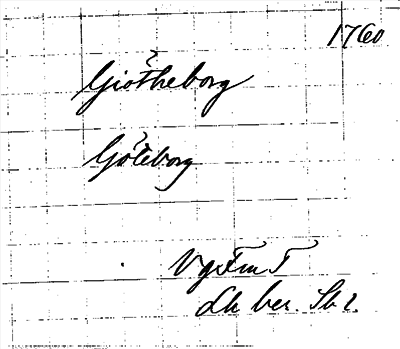 1760
Giötheborg
Göteborg
Vg Fm T
Lh ber. Sh 2.